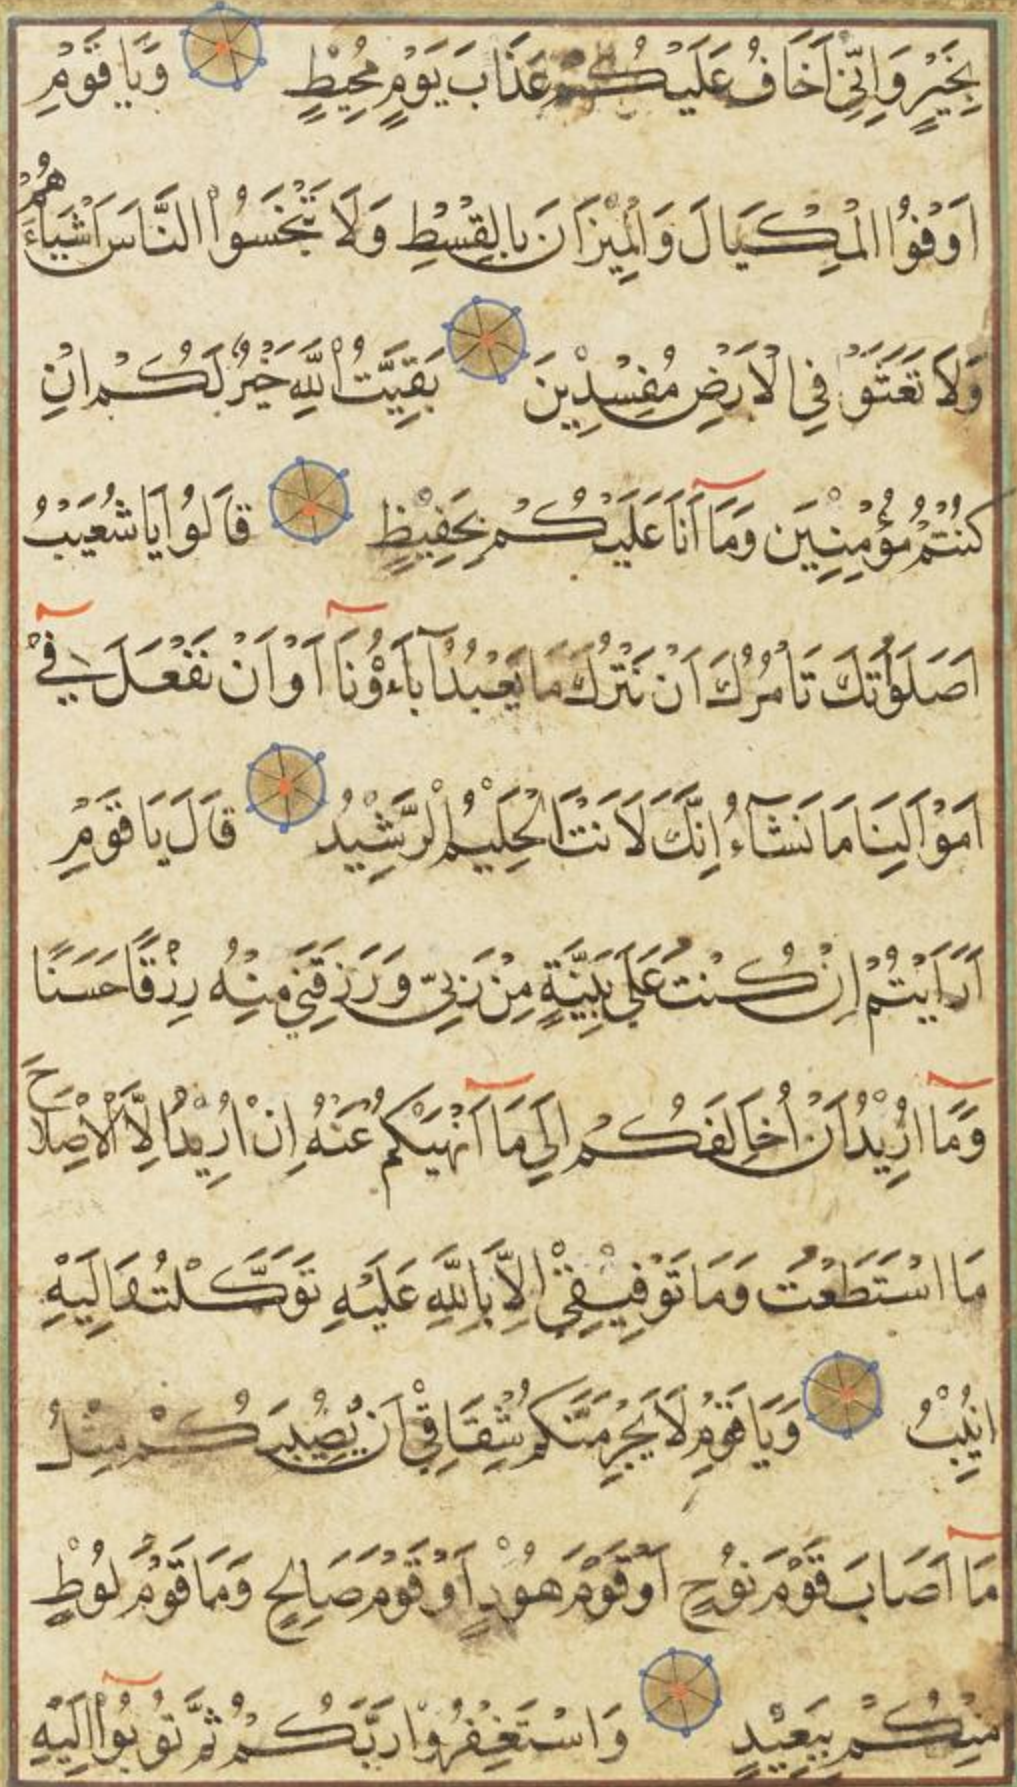 بِخَيْرٍ وَاِنِّي اَخَافُ عَلَيْكُمْ عَذَابَ يَوْمٍ مُحِيْطٍ وَيَا قَوْمِ
اَوْفُوا الْمِكْيَالَ وَالْمِيْزَانَ بِالْقِسْطِ وَلَا تَبْخَسُوا النَّاسَ اَشْيَاءَهُمْ
وَلَا تَعْثَوْا فِي الْاَرْضِ مُفْسِدِيْنَ بَقِيَّتُ اللّٰهِ خَيْرٌ لَكُمْ اِنْ
كُنْتُمْ مُؤْمِنِيْنَ وَمَآ اَنَا عَلَيْكُمْ بِحَفِيْظٍ قَالُوا يَا شُعَيْبُ
اَصَلَوٰتُكَ تَاْمُرُكَ اَنْ نَتْرُكَ مَا يَعْبُدُ آبَاؤُنَآ اَوْ اَنْ نَفْعَلَ فِيْٓ
اَمْوَالِنَا مَا نَشَآءُ اِنَّكَ لَاَنْتَ الْحَلِيْمُ الرَّشِيْدُ قَالَ يَا قَوْمِ
اَرَاَيْتُمْ اِنْ كُنْتُ عَلَى بَيِّنَةٍ مِنْ رَبِّيْ وَرَزَقَنِيْ مِنْهُ رِزْقًا حَسَنًا
وَمَآ اُرِيْدُ اَنْ اُخَالِفَكُمْ اِلَى مَآ اَنْهَيكُمْ عَنْهُ اِنْ اُرِيْدُ اِلَّا الْاِصْلَاحَ
مَا اسْتَطَعْتُ وَمَا تَوْفِيْقِيْ اِلَّا بِاللّٰهِ عَلَيْهِ تَوَكَّلْتُ وَاِلَيْهِ
اُنِيْبُ وَيَا قَوْمِ لَا يَجْرِمَنَّكُمْ شِقَاقِيْ اَنْ يُصِيْبَكُمْ مِثْلُ
مَآ اَصَابَ قَوْمَ نُوْحٍ اَوْ قَوْمَ هُوْدٍ اَوْ قَوْمَ صَالِحٍ وَمَا قَوْمُ لُوْطٍ
مِنْكُمْ بِبَعِيْدٍ وَاسْتَغْفِرُوْا رَبَّكُمْ ثُمَّ تُوْبُوْٓا اِلَيْهِ